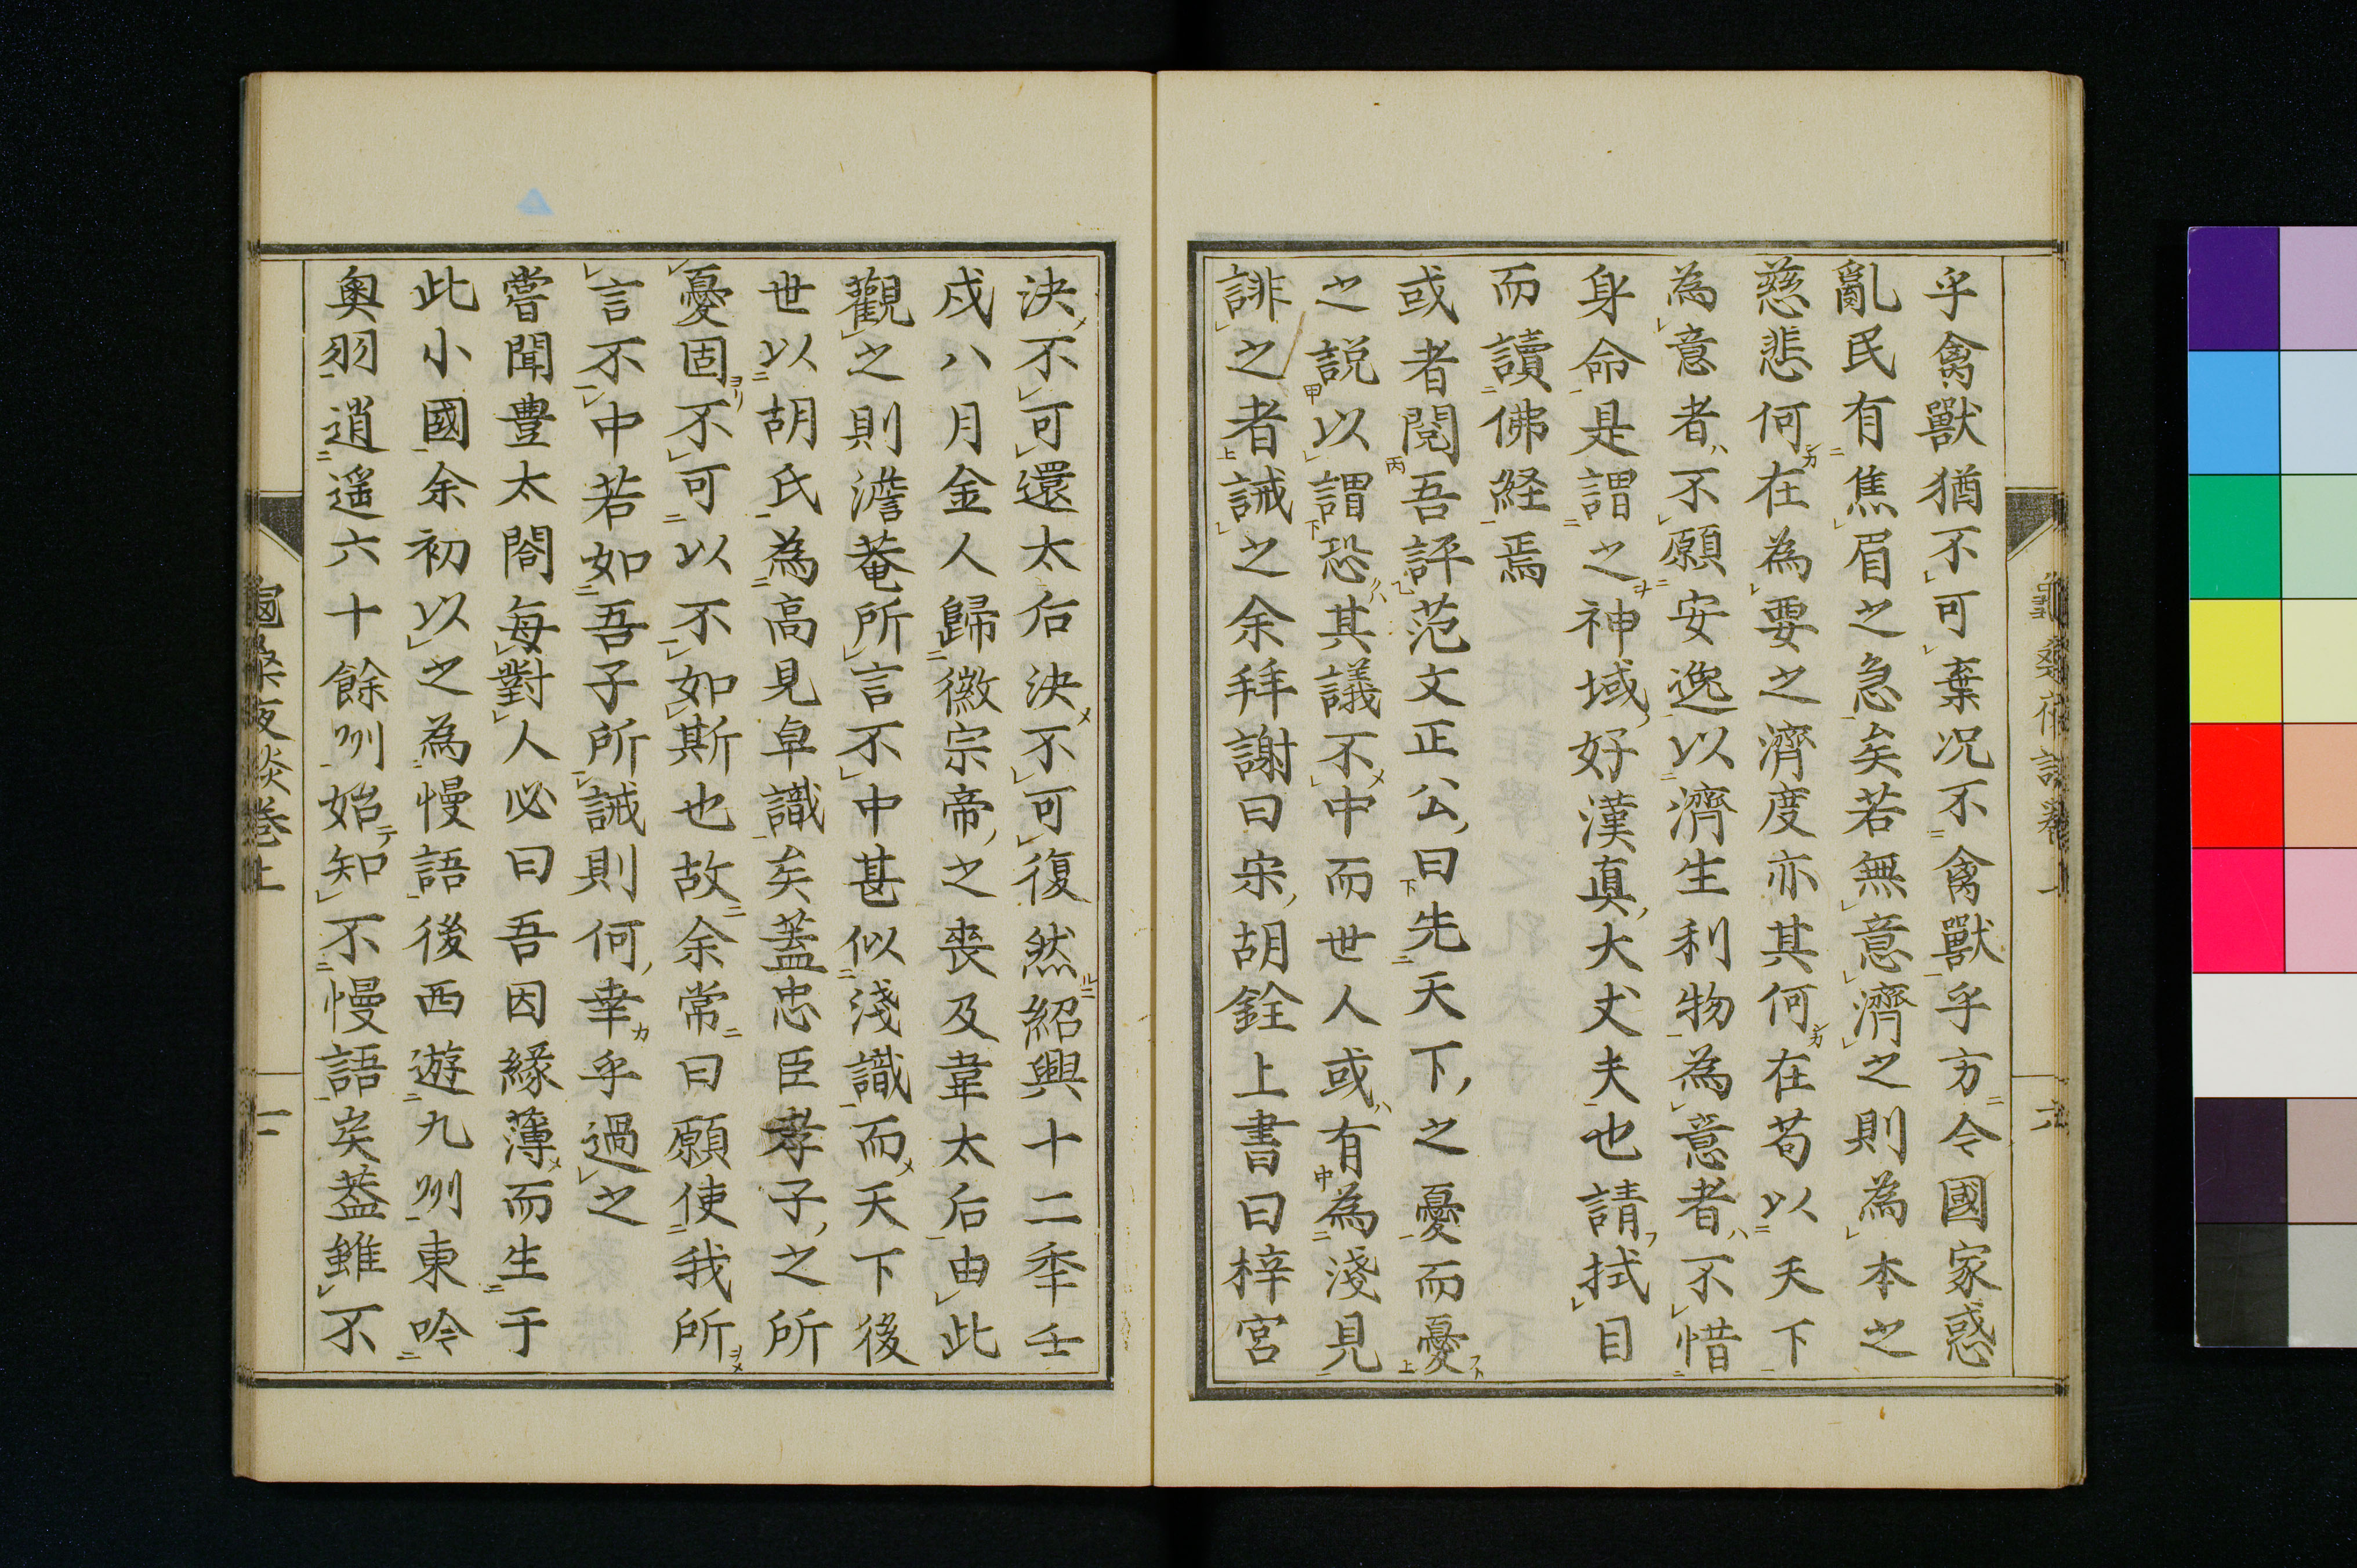 乎禽獸猶不可棄况不禽獸乎方今國家惑
亂民有焦眉之急矣若無意濟之則為本之
慈悲何在為要之濟度亦其何在苟以天下
為意者不願安逸以濟生利物為意者不惜
身命是謂之神域好漢真大丈夫也請拭目
而讀佛経焉
或者閱吾評范文正公曰先天下之憂而憂
之説以謂恐其議不中而世人或有為淺見
誹之者誡之余拜謝曰宋胡銓上書曰梓宮
決不可還太后決不可復然紹興十二秊壬
戍八月金人歸徽宗帝之喪及韋太后由此
觀之則澹菴所言不中甚似淺識而天下後
世以胡氏為高見卓識矣蓋忠臣孝子之所
憂固不可以不如斯也故余常曰願使我所
言不中若如吾子所誡則何幸乎過之
嘗聞豊太閤每對人必曰吾因緣薄而生于
此小國余初以之為慢語後西遊九州東吟
奥羽逍遥六十餘州始知不慢語矣蓋雖不